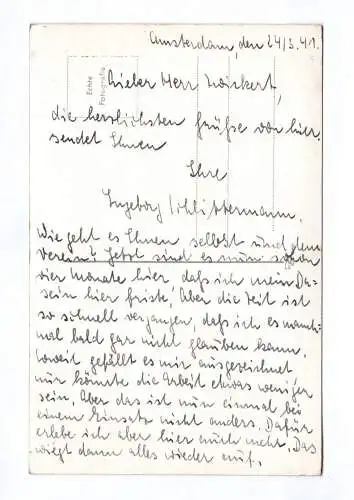 Amsterdam, den 24/5.41.
Echte
Fotografie
Lieber Herr Weickert,
die herzlichsten Grüße von hier
sendet Ihnen
Ihre
Ingeborg Schlittermann.
Wie geht es Ihnen selbst und dem
Verein? Jetzt sind es nun schon
vier Monate hier, daß ich mein Da-
sein hier friste. Aber die Zeit ist
so schnell vergangen, daß ich es manch-
mal bald gar nicht glauben kann.
Soweit gefällt es mir ausgezeichnet
nur könnte die Arbeit etwas weniger
sein. Aber das ist nun einmal bei
einem Einsatz nicht anders. Dafür
erlebe ich aber hier auch mehr. Das
wiegt dann alles wieder auf.